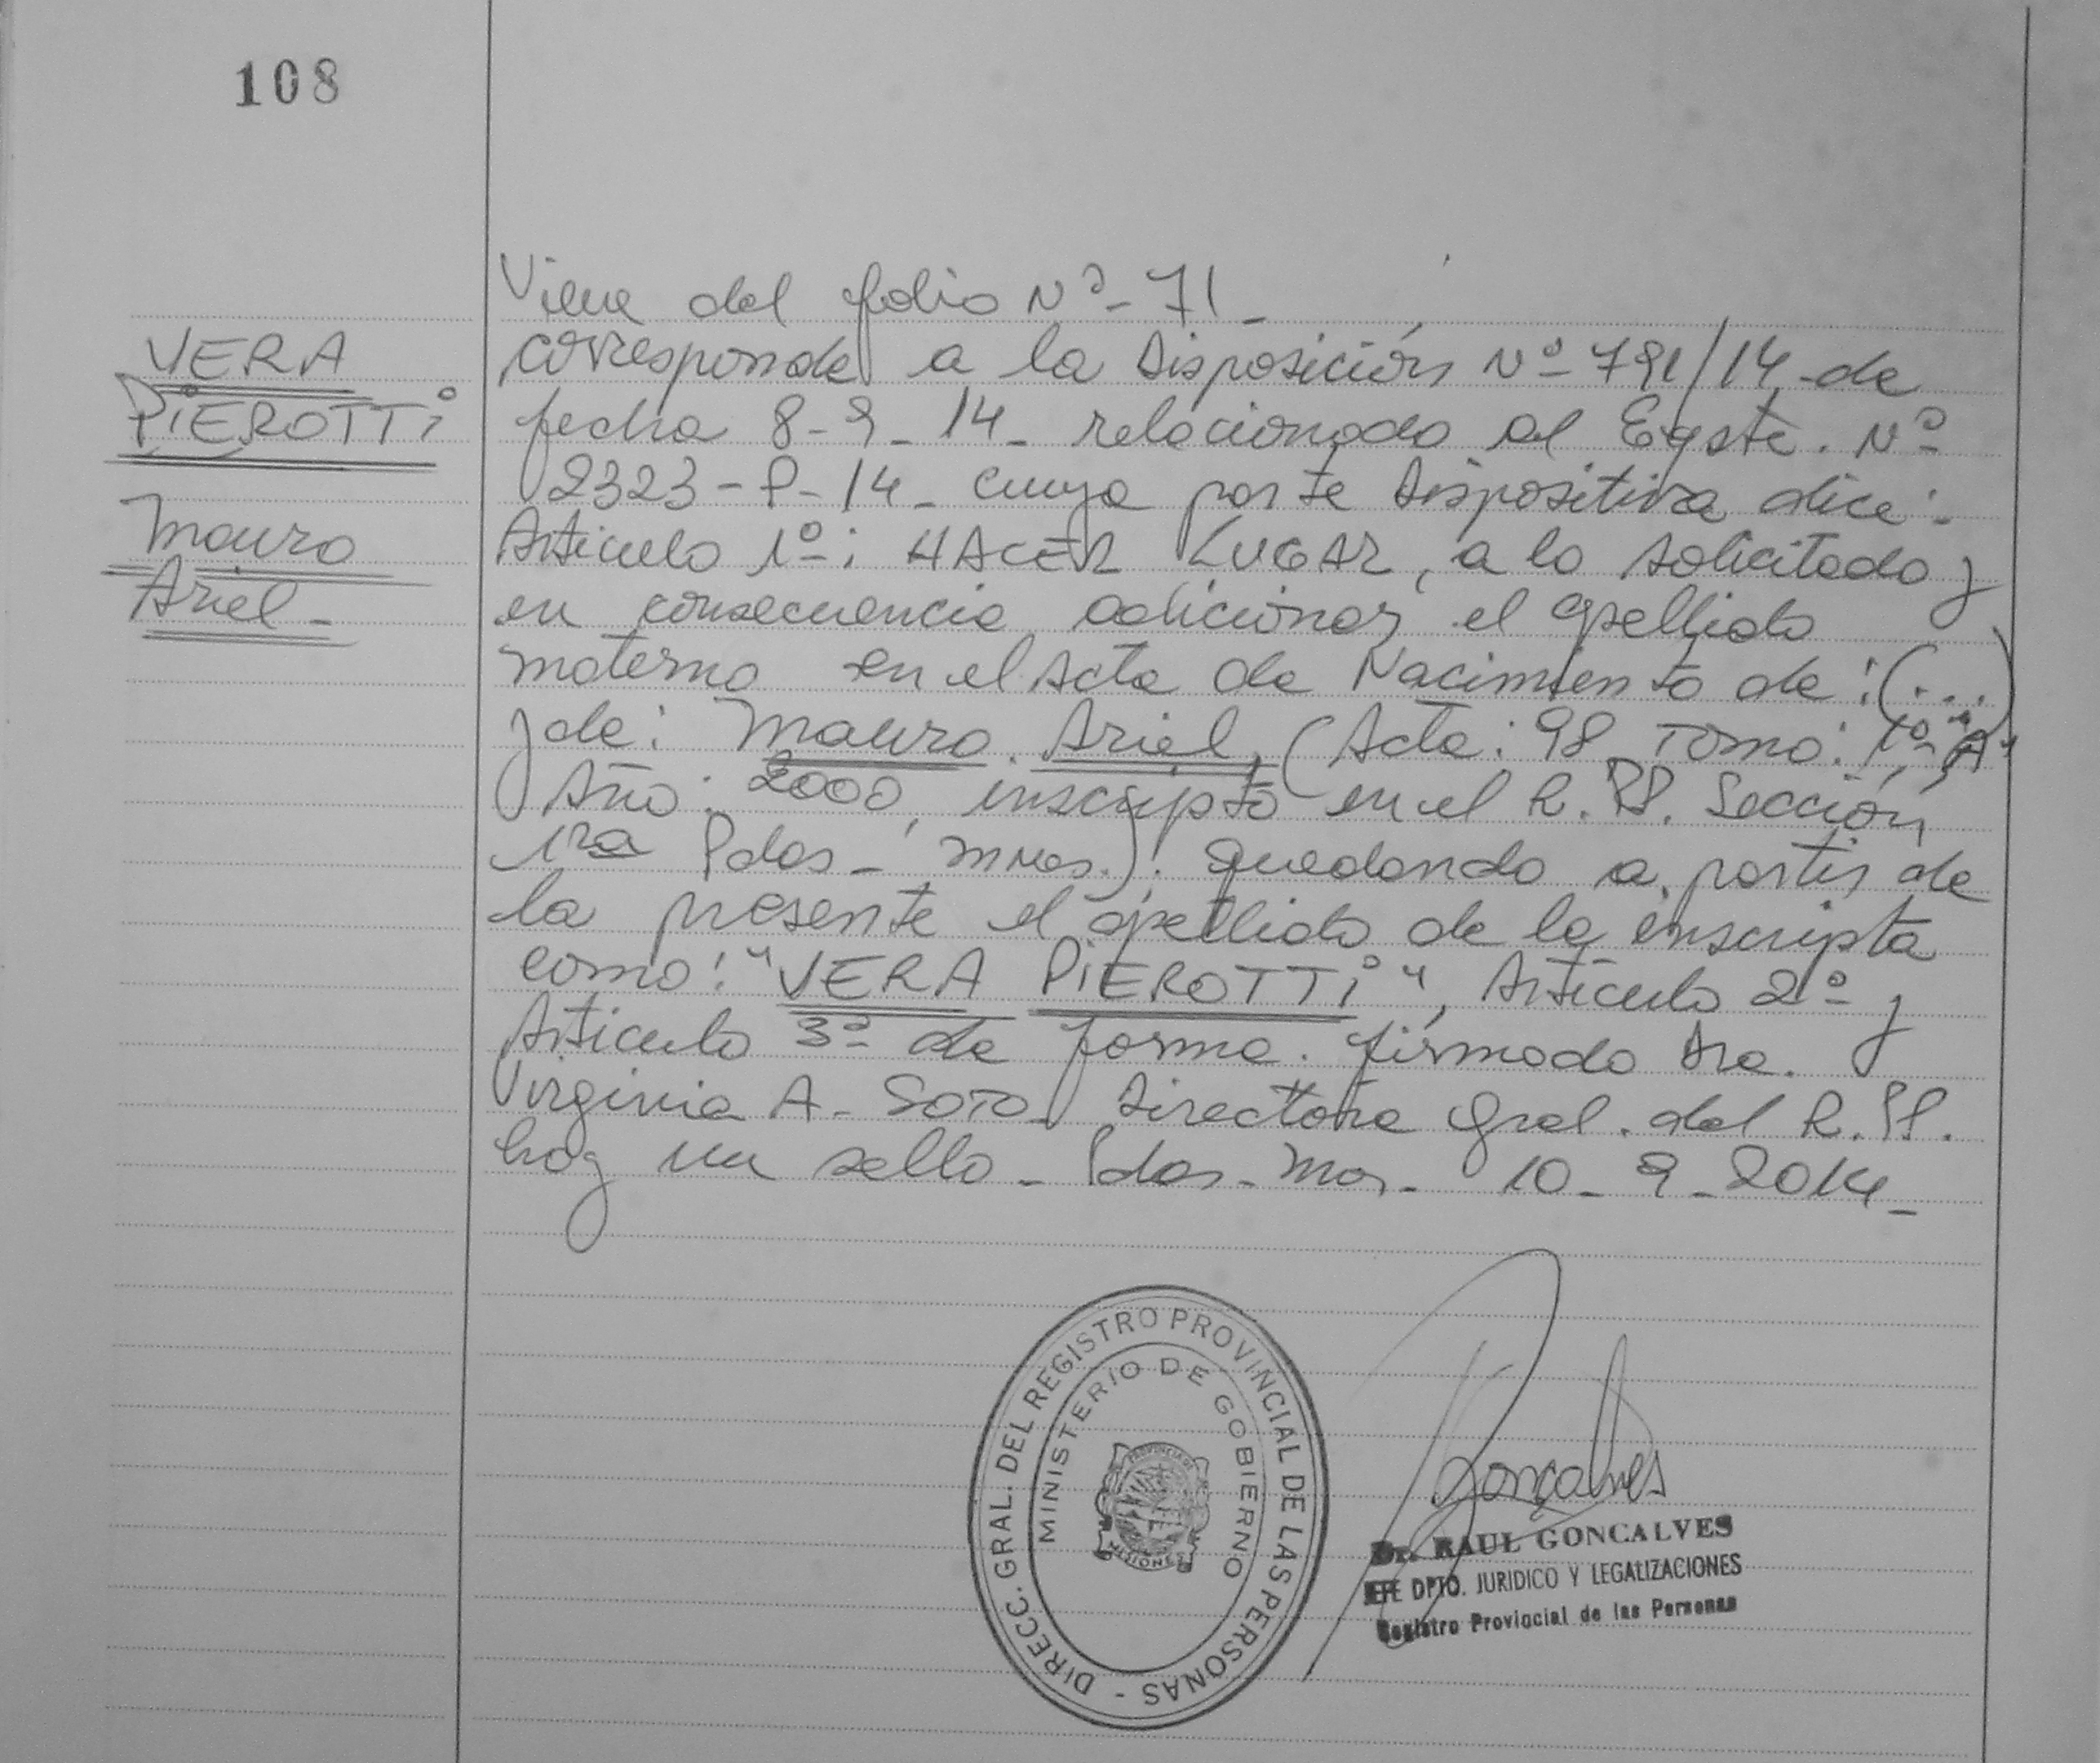 108
VERA
PiEROTTi
Mauro
Ariel -
Viene del folio Nº - 71 -
corresponde a la Disposición Nº 791/14 - de
fecha 8-9-14 - relacionado al Expte. Nº
2323-P-14 - cuya parte Dispositiva dice:
Articulo 1º: HACER LUGAR, a lo solicitado y
en consecuencia adicionar el apellido
materno en el Acta de Nacimiento de: (...)
y de: Mauro Ariel, (Acta: 98 Tomo: 1º "A"
Año: 2000, inscripto en el R. PP. Sección
1ra Pdas - Mnes.): quedando a partir de
la presente el apellido de la inscripta
como: "VERA PiEROTTi", Articulo 2º y
Articulo 3º de forma. firmado Dra.
Virginia A. SOTO - Directora Gral. del R. PP.
hay un sello - Pdas - Mns - 10 - 9 - 2014 -
DIRECC. GRAL. DEL REGISTRO PROVINCIAL DE LAS PERSONAS -
MINISTERIO DE GOBIERNO
PROVINCIA DE
MISIONES
Gonçalves
Dr. RAUL GONCALVES
JEFE DPTO. JURIDICO Y LEGALIZACIONES
Registro Provincial de las Personas